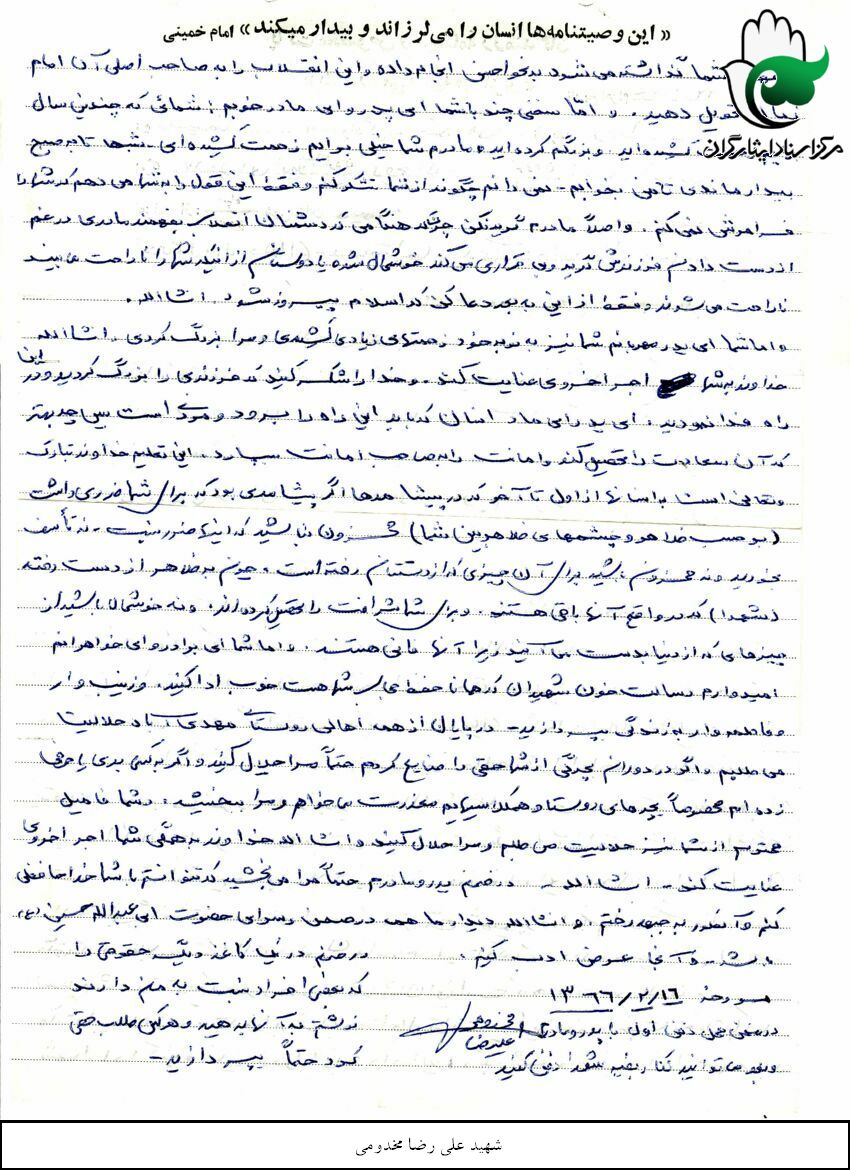 « این وصیتنامه‌ها انسان را می‌لرزاند و بیدار میکند » امام خمینی
مرکز اسناد ایثارگران
شما گذاشته می شود بنحو احسن انجام داده و این انقلاب را به صاحب اصلی آن امام
زمان تحویل دهید . و اما سخنی چند با شما ای پدر و ای مادر خوبم ؛ شمائی که چندین سال
کشیده‌اید و بزرگم کرده‌اید . مادرم شما خیلی برایم زحمت کشیده‌ای - شبها تا به صبح
بیدار ماندی تا من بخوابم - نمی دانم چگونه از شما تشکر کنم و فقط این قول را به شما می دهم که شما را
فراموش نمی کنم . واصلاً مادرم گریه نکن چرا که هنگامی که دشمنان انقلاب بفهمند مادری در غم
از دست دادن فرزندش گریه و بی قراری می کند خوشحال شده یا دوستانم از اینکه شما را ناراحت می بیند
ناراحت می شوند و فقط از این به بعد دعا کن که اسلام پیروز شود . انشاالله .
و اما شما ای پدر مهربانم شما نیز به نوبه خود زحمتهای زیادی کشیدی و مرا بزرگ کردی . انشاالله
خداوند به شما اجر اخروی عنایت کند . و خدا را شکر کنید که فرزندی را بزرگ کردید و در این
راه فدا نمودید . ای پدر و ای مادر انسان که باید این راه را برود و مردنی است پس چه بهتر
که آن سعادت را تحصیل کند و امانت را به صاحب امانت سپارد . این تعلیم خداوند تبارک
و تعالی است به انسانها از اول تا آخر که در پیشامدها اگر پیشامدی بود که برای شما ضرری داشت
( بر حسب ظاهر و چشمهای ظاهربین شما ) محزون نباشید که اینها ضرر نیست - نه تأسف
بخورید و نه محزون باشید برای آن چیزی که از دستتان رفته است . چون به ظاهر از دست رفته
( شهدا ) که در واقع آنها باقی هستند . و برای شما شرافت را تحصیل کرده‌اند . و نه خوشحال باشید از
چیزهای که از دنیا بدست می آیند زیرا آنها فانی هستند . و اما شما ای برادر و ای خواهرانم
امیدوارم رسالت خون شهیدان که همانا حفظ است خوب ادا کنید . و زینب وار
و فاطمه وار به زندگی بپردازید - در پایان از همه اهالی روستای مهدی آباد حلالیت
می طلبم و اگر در دوران بچگی از شما حقی را ضایع کردم حتماً مرا حلال کنید و اگر به کسی بدی یا حرفی
زده ام مخصوصاً بچه‌های روستا و همکلاسیهایم معذرت می خواهم و مرا ببخشید . و شما فامیل
محترم از شما نیز حلالیت می طلبم و مرا حلال کنید و انشاالله خداوند به همگی شما اجر اخروی
عنایت کند - انشاالله - در ضمن پدر و مادرم حتماً مرا می بخشید که نتوانستم با شما خداحافظی
کنم و آنطور به جبهه رفتم . و انشاالله دیدار ما همه در صحن و سرای حضرت ابی عبدالله حسین (ع)
باشد - و آنجا عرض ادب کنیم .
مورخه ۱۳۶۶/۲/۱۶
در ضمن در یک کاغذ دیگ حقوقی را
که بعضی افراد نسبت به من دارند
نوشتم به آنها بدهید و هر کس طلب حقی
کرد حتماً بپردازید -
در ضمن محل دفن اول با پدر و مادرم
و بعد می توانید کنار بقیه شهدا دفن کنید
علیرضا مخدومی
شهید علی رضا مخدومی